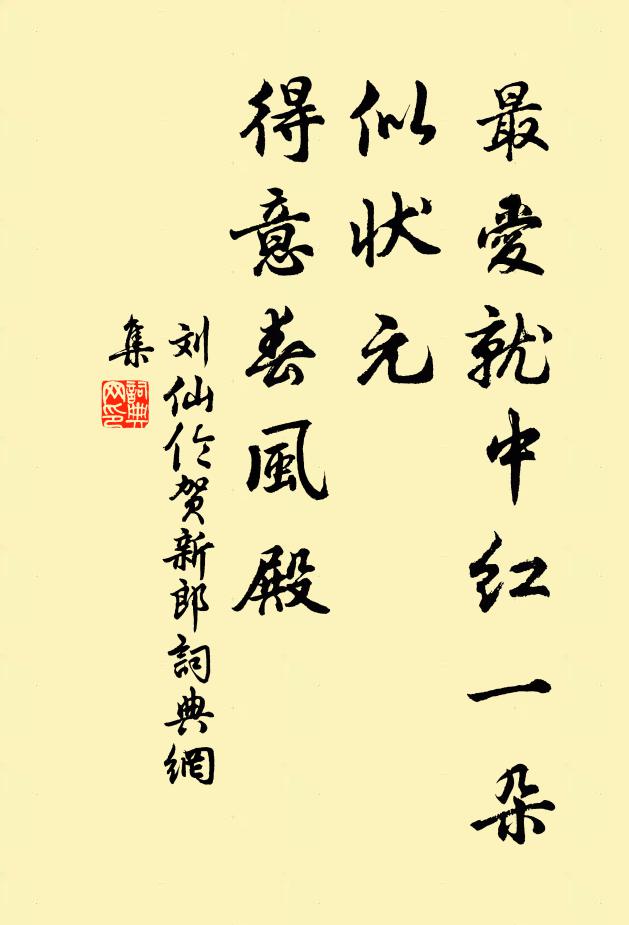 最愛就中紅一朵
似状元
得意春風殿
刘仙伦贺新郎詞典網
集
詞典網印